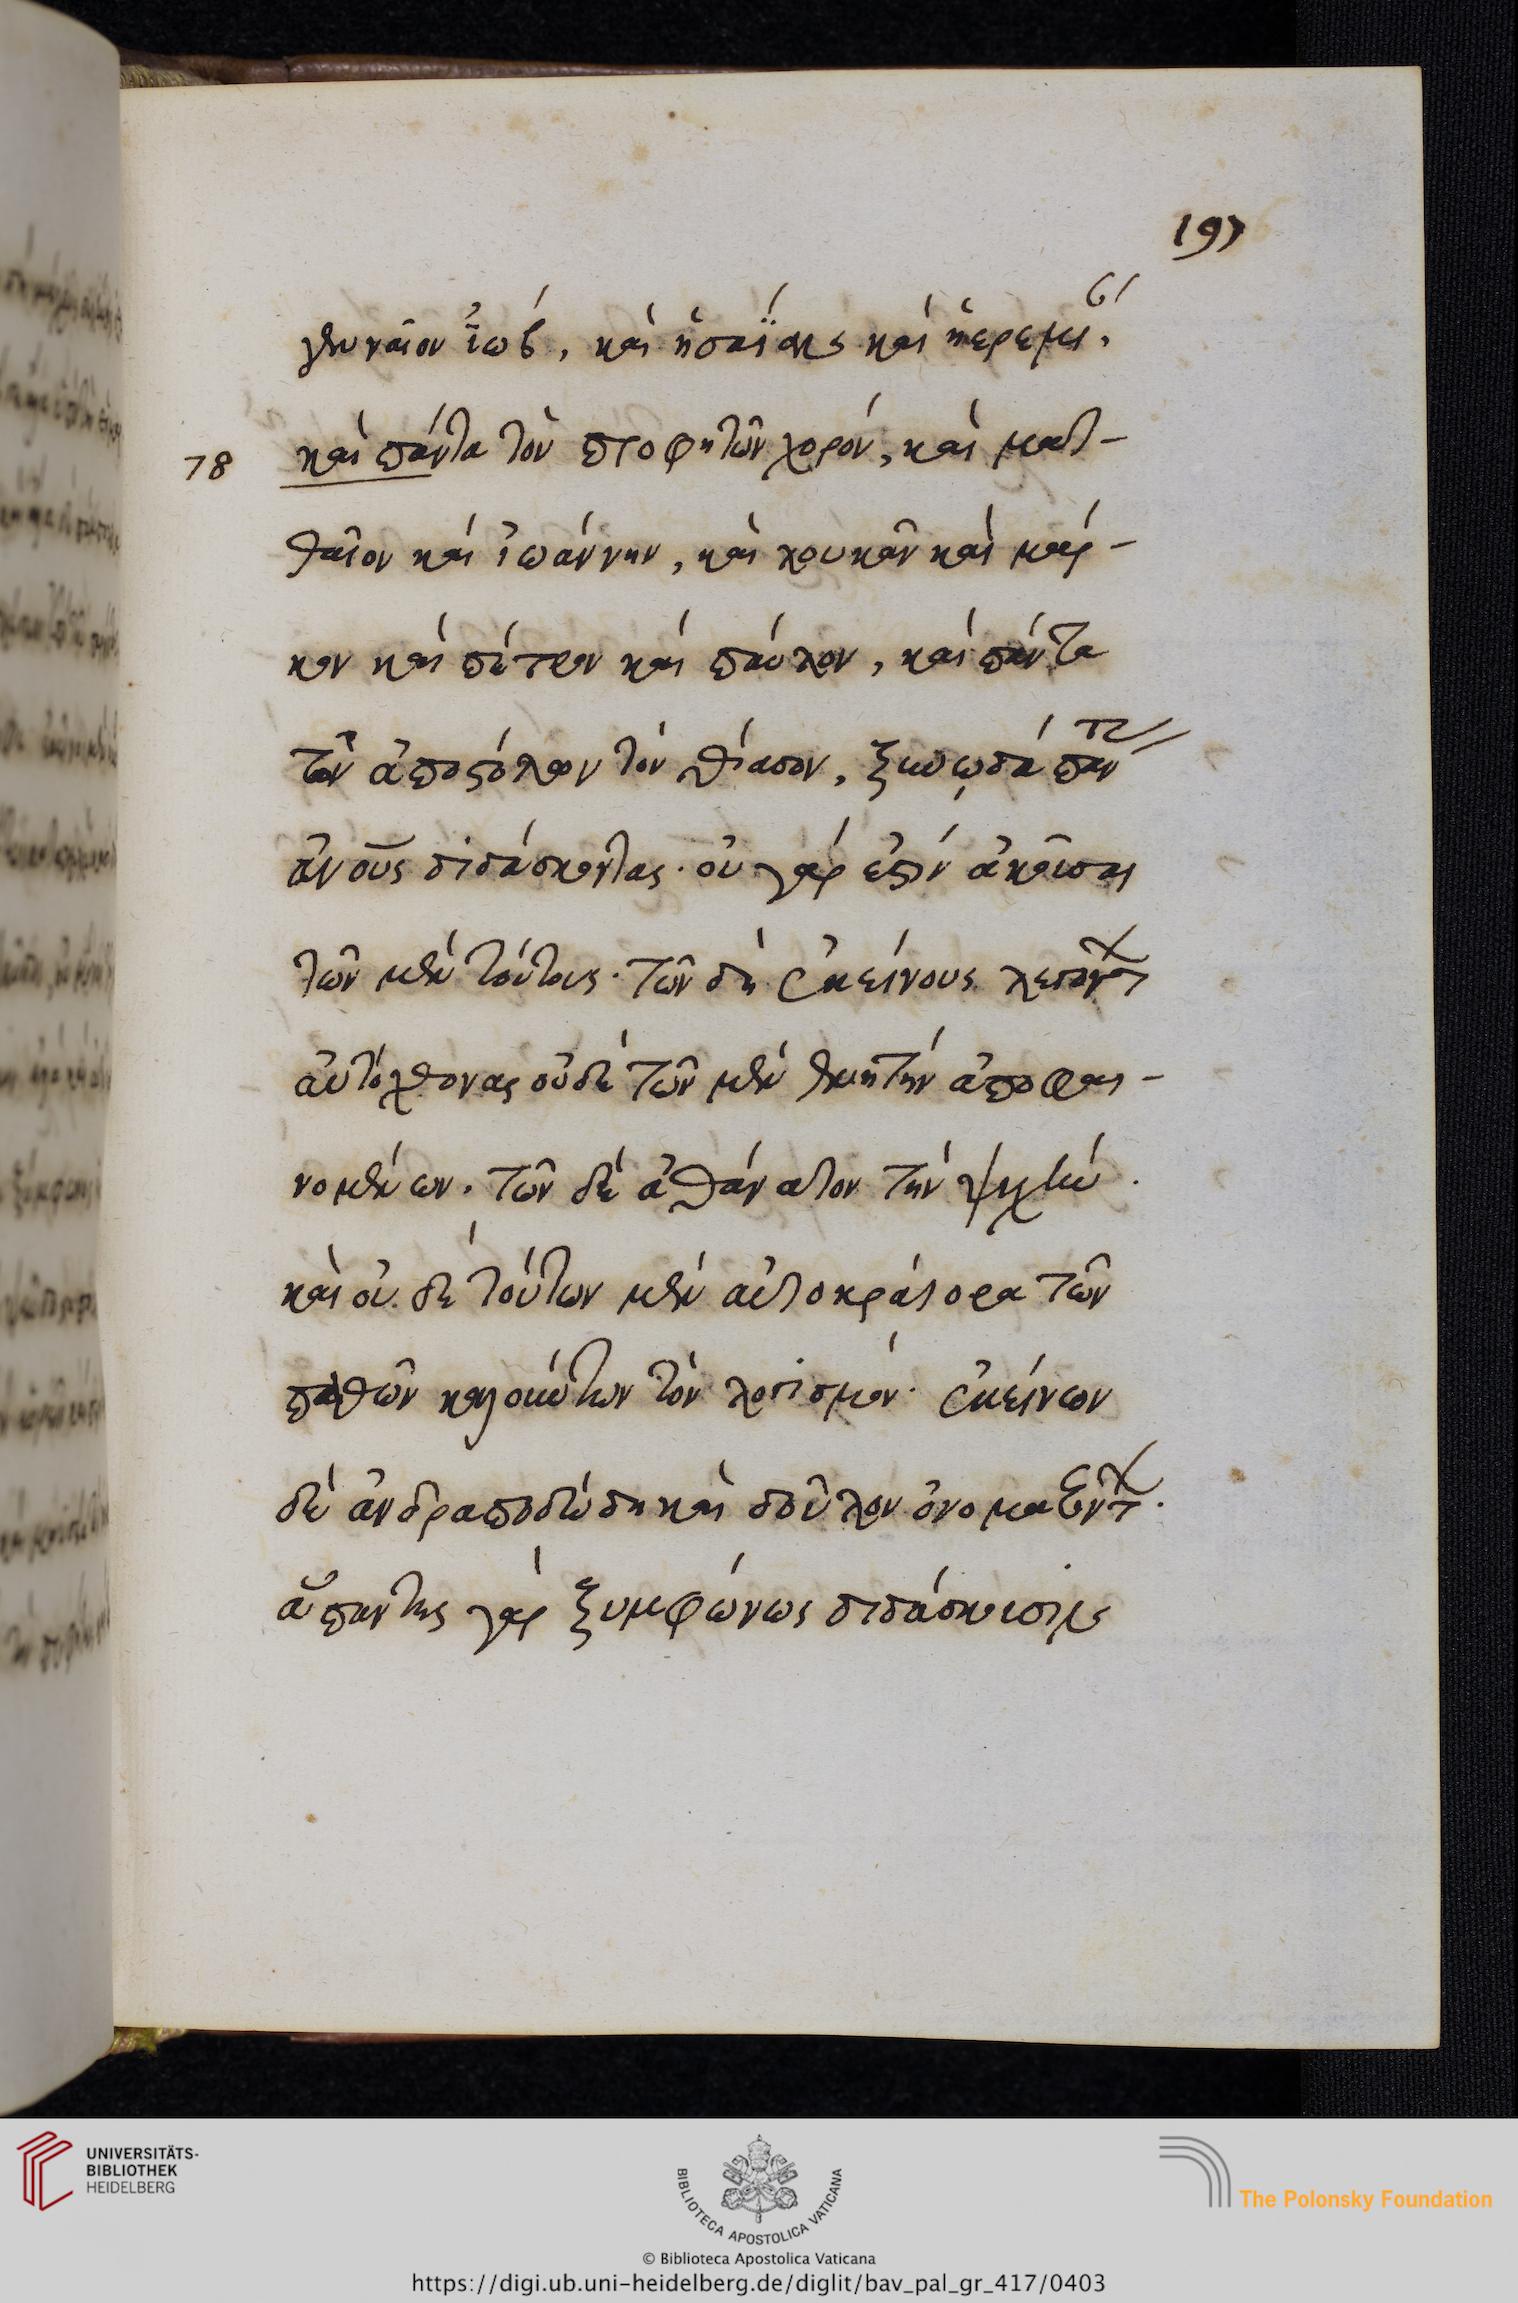 197
γενναῖον ἰώβ, καὶ ἡσαΐας καὶ ἱερεμί
78 καὶ πάντα τὸν προφητῶν χορόν, καὶ ματ-
θαῖον καὶ ἰωάννην, καὶ λουκᾶν καὶ μάρ-
κον καὶ πέτρον καὶ παῦλον, καὶ πάντα
τῶν ἀποστόλων τὸν θίασον, ξυνῳδὰ παντ
ἀνους διδάσκοντας. οὐ γάρ ἐστιν ἀκοῦσαι
τῶν μὲν τούτους. τῶν δὲ ἐκείνους λεγόντ
αὐτόχθονας οὐδὲ τῶν μὲν θνητὴν ἀποφαι-
νομένων. τῶν δὲ ἀθάνατον τὴν ψυχήν.
καὶ οὐδὲ τούτων μὲν αὐτοκράτορα τῶν
παθῶν καλούντων τὸν λογισμόν. ἐκείνων
δὲ ἀνδραποδώδη καὶ δοῦλον ὀνομαζόντ.
ἅπαντες γὰρ ξυμφώνως διδάσκουσιν
UNIVERSITÄTS-
BIBLIOTHEK
HEIDELBERG
BIBLIOTECA APOSTOLICA VATICANA
The Polonsky Foundation
© Biblioteca Apostolica Vaticana
https://digi.ub.uni-heidelberg.de/diglit/bav_pal_gr_417/0403